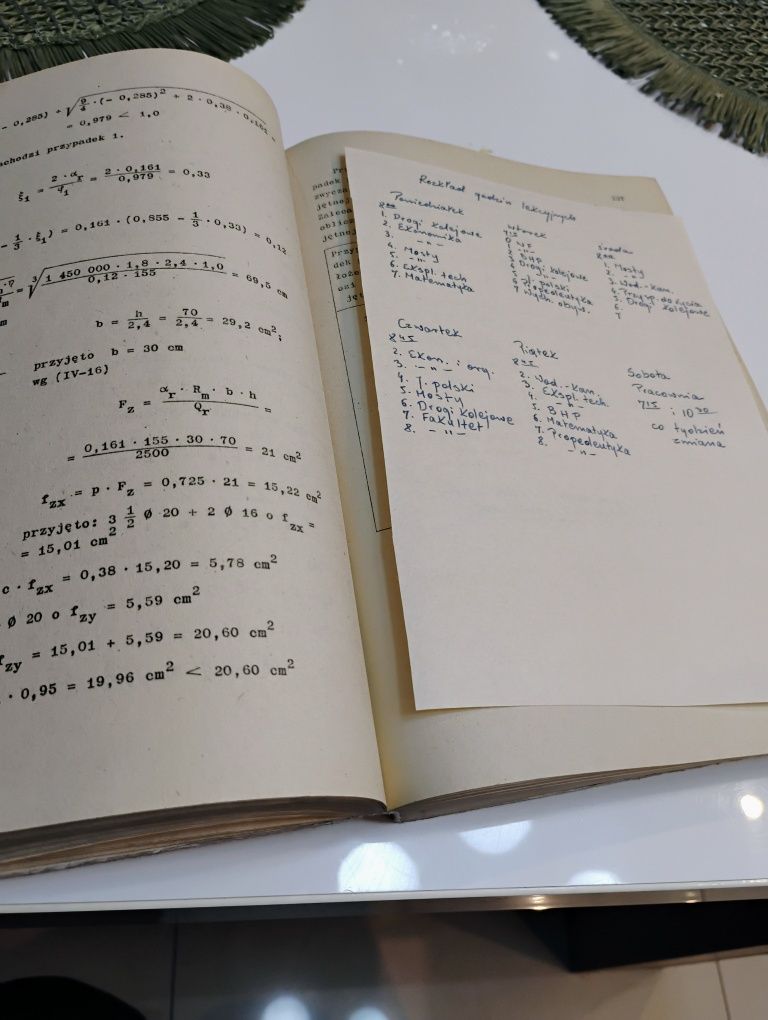 - 0,285) + √(9/4 · (- 0,285)² + 2 · 0,38 · 0,161 =
= 0,979 < 1,0
achodzi przypadek 1.
ξ₁ = 2 · αr / φ₁ = 2 · 0,161 / 0,979 = 0,33
- 1/3 · ξ₁) = 0,161 · (0,855 - 1/3 · 0,33) = 0,12
= ³√(1 450 000 · 1,8 · 2,4 · 1,0 / 0,12 · 155) = 69,5 cm
b = h / 2,4 = 70 / 2,4 = 29,2 cm²;
przyjęto b = 30 cm
wg (IV-16)
Fz = αr · Rm · b · h / Qr =
= 0,161 · 155 · 30 · 70 / 2500 = 21 cm²
fzx = p · Fz = 0,725 · 21 = 15,22 cm²
przyjęto: 3 1/2 Ø 20 + 2 Ø 16 o fzx =
= 15,01 cm²
c · fzx = 0,38 · 15,20 = 5,78 cm²
Ø 20 o fzy = 5,59 cm²
fzy = 15,01 + 5,59 = 20,60 cm²
· 0,95 = 19,96 cm² < 20,60 cm²
padek
zwycza
jętneg
Zaleca
oblic
jętne
Przyj
dek
łoże
ozi
ję
Rozkład godzin lekcyjnych
Poniedziałek
8⁰⁰
1. Drogi kolejowe
2. Ekonomika
3. - " -
4. Mosty
5. - " -
6. Ekspl. tech
7. Matematyka
wtorek
7¹⁵
BHP
Drogi kolejowe
J. polski
Propedeutyka
7 Wych. obyw.
środa
8⁰⁰
1. Mosty
2. - " -
3. Wod.-Kan.
4. Przysp. do życia
5. Drogi kolejowe
6
7
Czwartek
8⁴⁵
2. Ekon. i org.
3. - " -
4. J. polski
5. Mosty
6. Drogi kolejowe
7. Fakultet
8. - " -
Piątek
8⁴⁵
2. Wod.-Kan.
3. Ekspl. tech.
4. - " -
5. BHP
6. Matematyka
7. Propedeutyka
8. - " -
Sobota
Pracownia
7¹⁵ i 10³⁰
co tydzień
zmiana